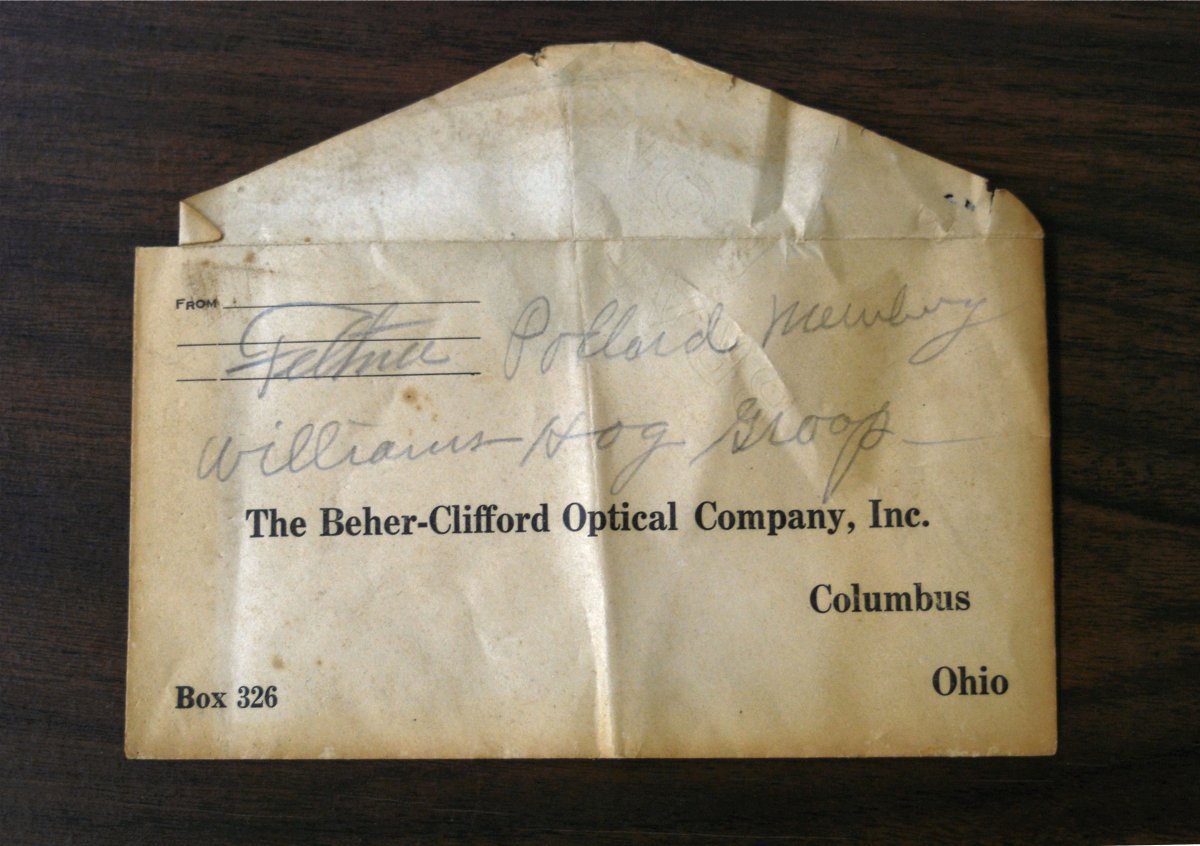 FROM
Feltner Pollard Mewbery
Williams Hog Groop
The Beher-Clifford Optical Company, Inc.
Columbus
Ohio
Box 326